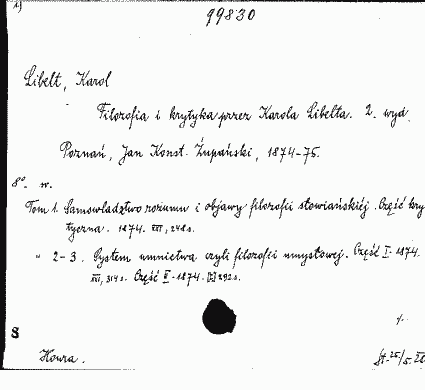 99830
Libelt, Karol
Filozofia i krytyka przez Karola Libelta. 2. wyd.
Poznań, Jan Konst. Żupański, 1874-75.
8°. w.
Tom 1. Samowładztwo rozumu i objawy filozofii słowiańskiéj. Część kry
tyczna. 1874. XVI, 248 s.
" 2-3. System umnictwa czyli filozofii umysłowej. Część I. 1874.
XVI, 314 s. Część II. 1874. [3] 292 s.
S